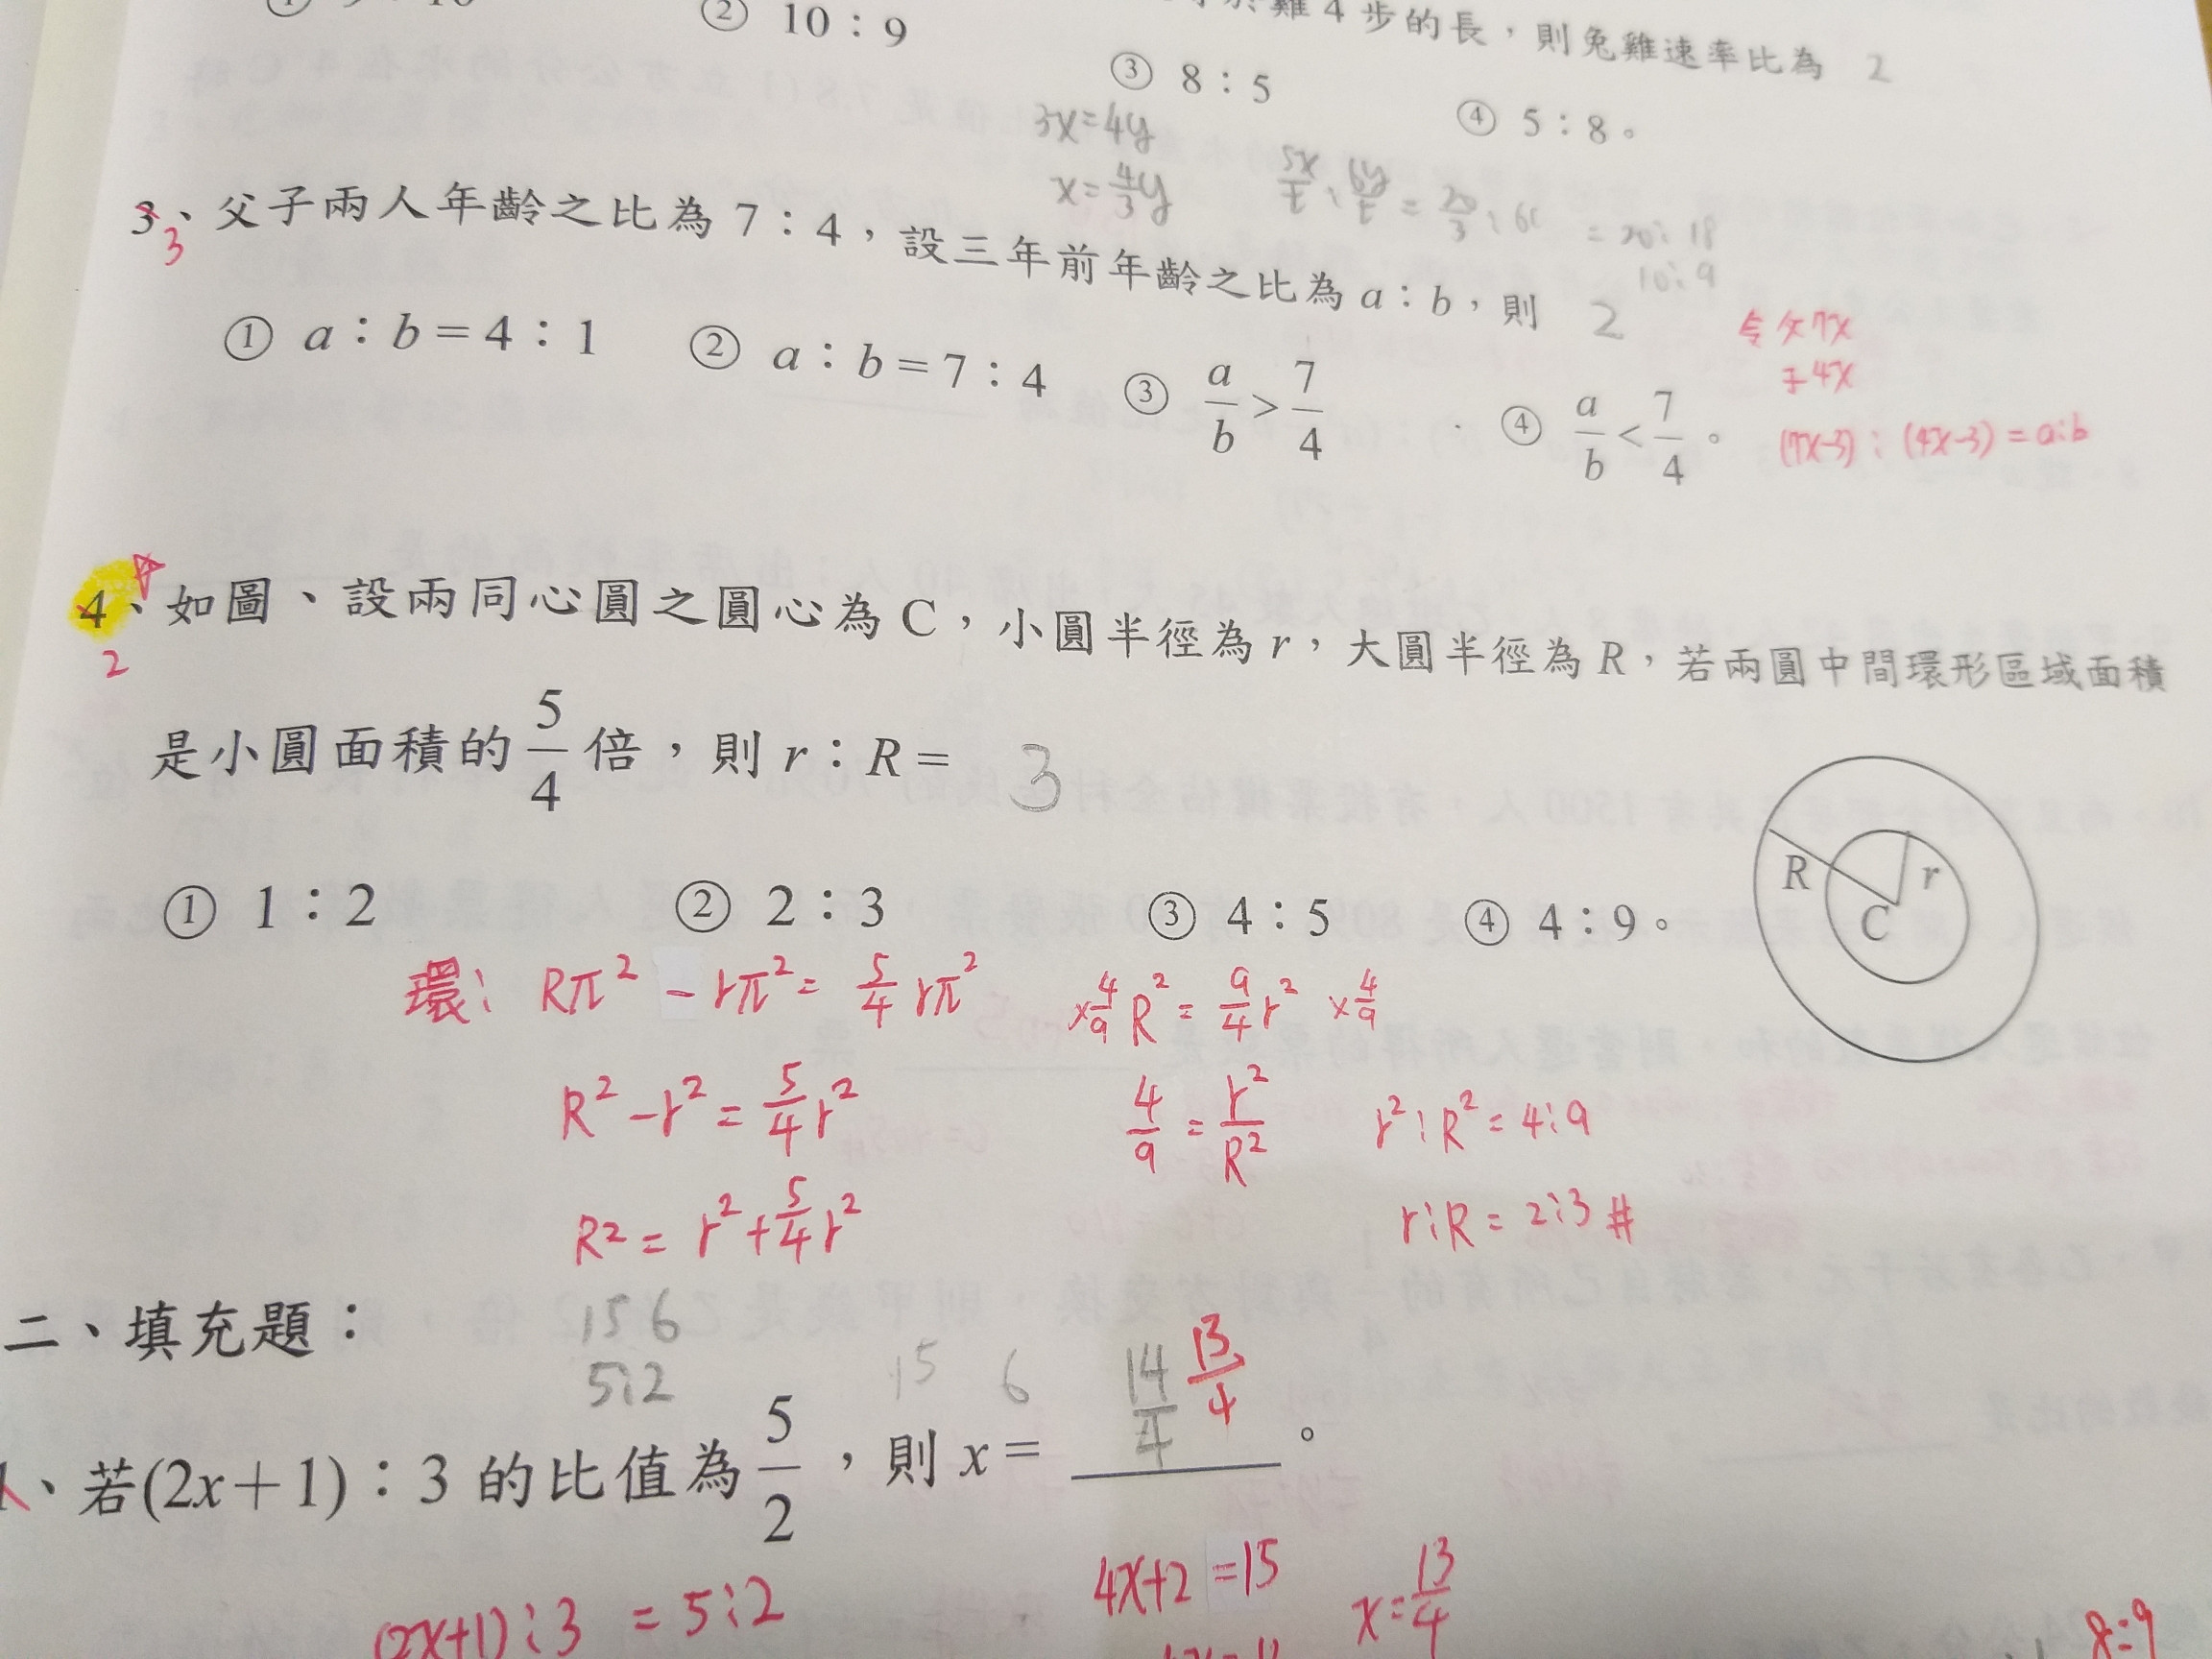 ② 10：9
雞 4 步的長，則兔雞速率比為 2
③ 8：5
④ 5：8。
3x=4y
x=4/3y
=20:18
10:9
3、父子兩人年齡之比為 7：4，設三年前年齡之比為 a：b，則 2
3
① a：b＝4：1 ② a：b＝7：4 ③ a/b > 7/4 ④ a/b < 7/4。
令父7x
子4x
(7x-3):(4x-3)=a:b
4、如圖、設兩同心圓之圓心為 C，小圓半徑為 r，大圓半徑為 R，若兩圓中間環形區域面積
2
是小圓面積的 5/4 倍，則 r：R＝ 3
R r
C
① 1：2 ② 2：3 ③ 4：5 ④ 4：9。
環: Rπ² - rπ² = 5/4 rπ²
R² - r² = 5/4 r²
R2 = r² + 5/4 r²
×4/9 R² = 9/4 r² ×4/9
4/9 = r²/R²
r²:R² = 4:9
r:R = 2:3 #
二、填充題：
15 6
5:2
15 6
1、若(2x＋1)：3 的比值為 5/2，則 x＝ 14/4 13/4 。
(2x+1):3 = 5:2
4x+2 =15
x=13/4
8:9